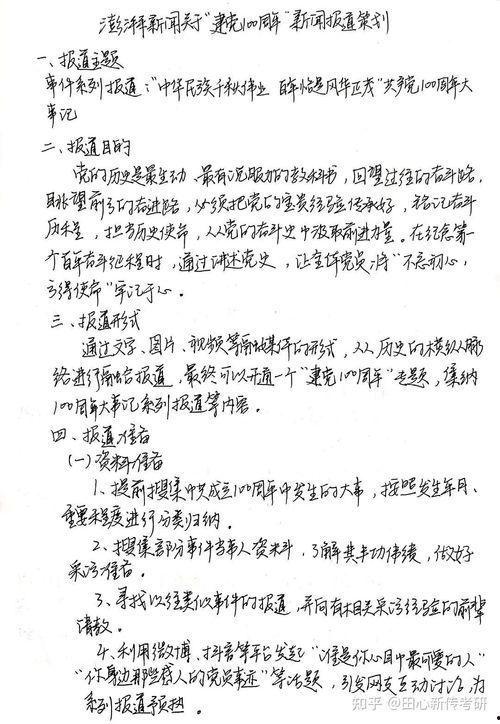 澎湃新闻关于"建党100周年"新闻报道策划
一、报道主题
事件系列报道:"中华民族千秋伟业 百年恰是风华正茂"共产党100周年大
事记
二、报道目的
党的历史是最生动、最有说服力的教科书,回望过往的奋斗路,
眺望前方的奋进路,必须把党的宝贵经验传承好,铭记奋斗
历程,担当历史使命,从党的奋斗史中汲取前进力量。在纪念第一
个百年奋斗征程时,通过讲述党史,让全体党员将"不忘初心,
方得使命"牢记于心。
三、报道形式
通过文字、图片、视频等融媒体的形式,从历史的横纵脉
络进行融合报道,最终可以开通一个"建党100周年"专题,集纳
100周年大事记系列报道等内容。
四、报道准备
(一)资料准备
1、提前搜集中共成立100周年中发生的大事,按照发生年月、
重要程度进行分类归纳。
2、搜集部分事件当事人资料,了解其丰功伟绩,做好
采访准备。
3、寻找以往类似事件的报道,并向有相关采访经验的前辈
请教。
4、利用微博、抖音等平台发起"谁是你心目中最可爱的人"
"你身边那些感人的党员事迹"等话题,引发网友互动讨论,为
系列报道预热。
知乎 @田心新传考研